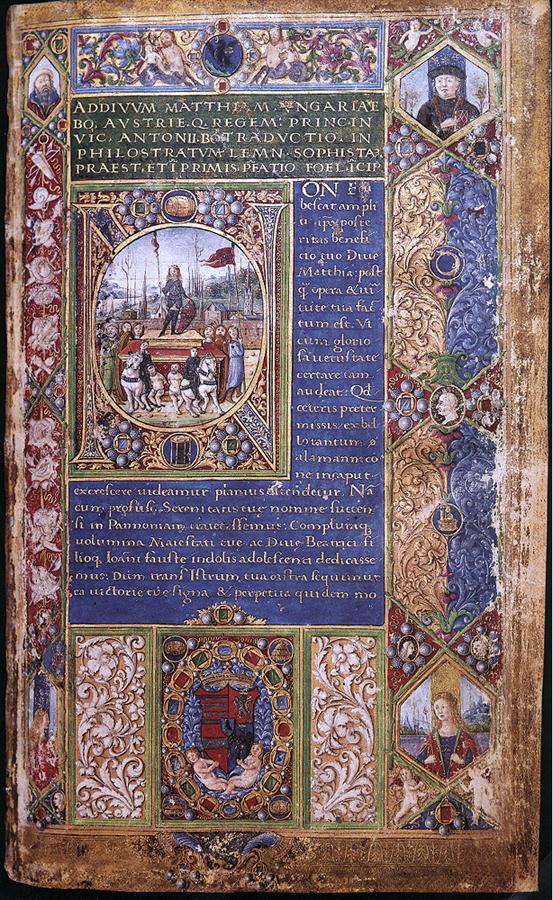 AD DIVVM MATTHIAM VNGARIAE
BO. AVSTRIE.Q. REGEM: PRINCIN
VIC. ANTONII.BO TRADVCTIO. IN
PHILOSTRATVM LEMN. SOPHISTA
PRAEST. ET I PRIMIS. PFATIO FOELICIP
ON
bescat ampli
poste
ritas benefi
cio tuo Diue
Matthia: post
q̄ opera & uir
tute tua fac
tum est. Vt
cum glorio
sa uetustate
certare iam
audeat. Qd
ceteris preter
missis, ex bel
lo tantum
alamanico
ne in caput
excrescere uideamur planius Na
cum Serenitatis tuę nomine
si in Pannoniam Complura q
uolumina Maiestati tuę ac Diuę Beatrici fi
lioq Ioāni fauste indolis adolescenti dedicasse
mus: Dum trans Istrum, tua castra sequimur
ea uictorie tuę signa & perpetua quidem mo